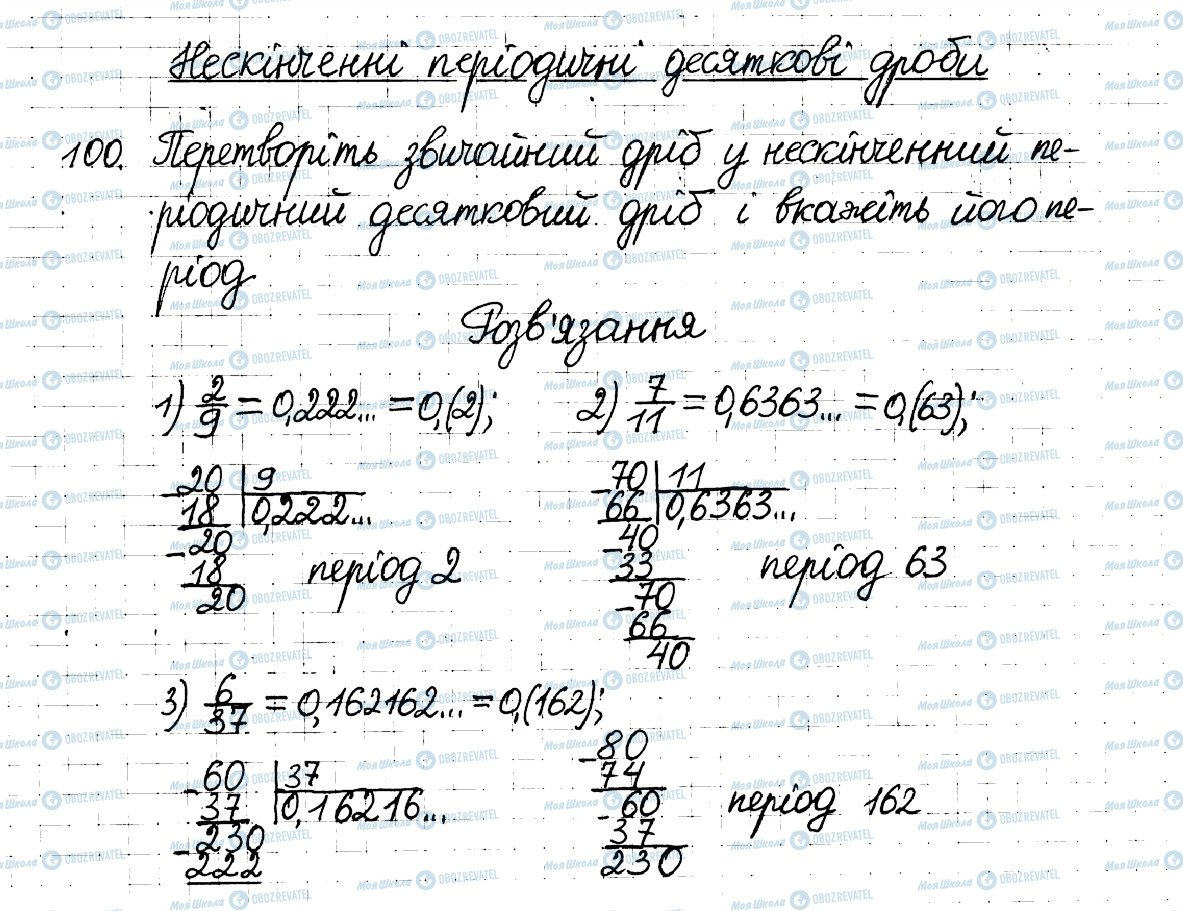 Нескінченні періодичні десяткові дроби
100. Перетворіть звичайний дріб у нескінченний пе-
ріодичний десятковий дріб і вкажіть його пе-
ріод
Розв'язання
1) 2/9 = 0,222... = 0,(2); 2) 7/11 = 0,6363... = 0,(63);
20 | 9
18 | 0,222...
- 20
18
20
період 2
- 70 | 11
66 | 0,6363...
- 40
33
- 70
66
40
період 63
3) 6/37 = 0,162162... = 0,(162);
- 60 | 37
37 | 0,16216...
- 230
222
- 80
74
- 60
37
230
період 162
Моя Школа OBOZREVATEL